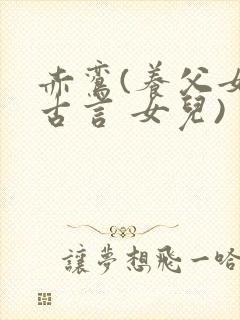 赤鸾(養父女
古言 女兒)
讓夢想飛一哈